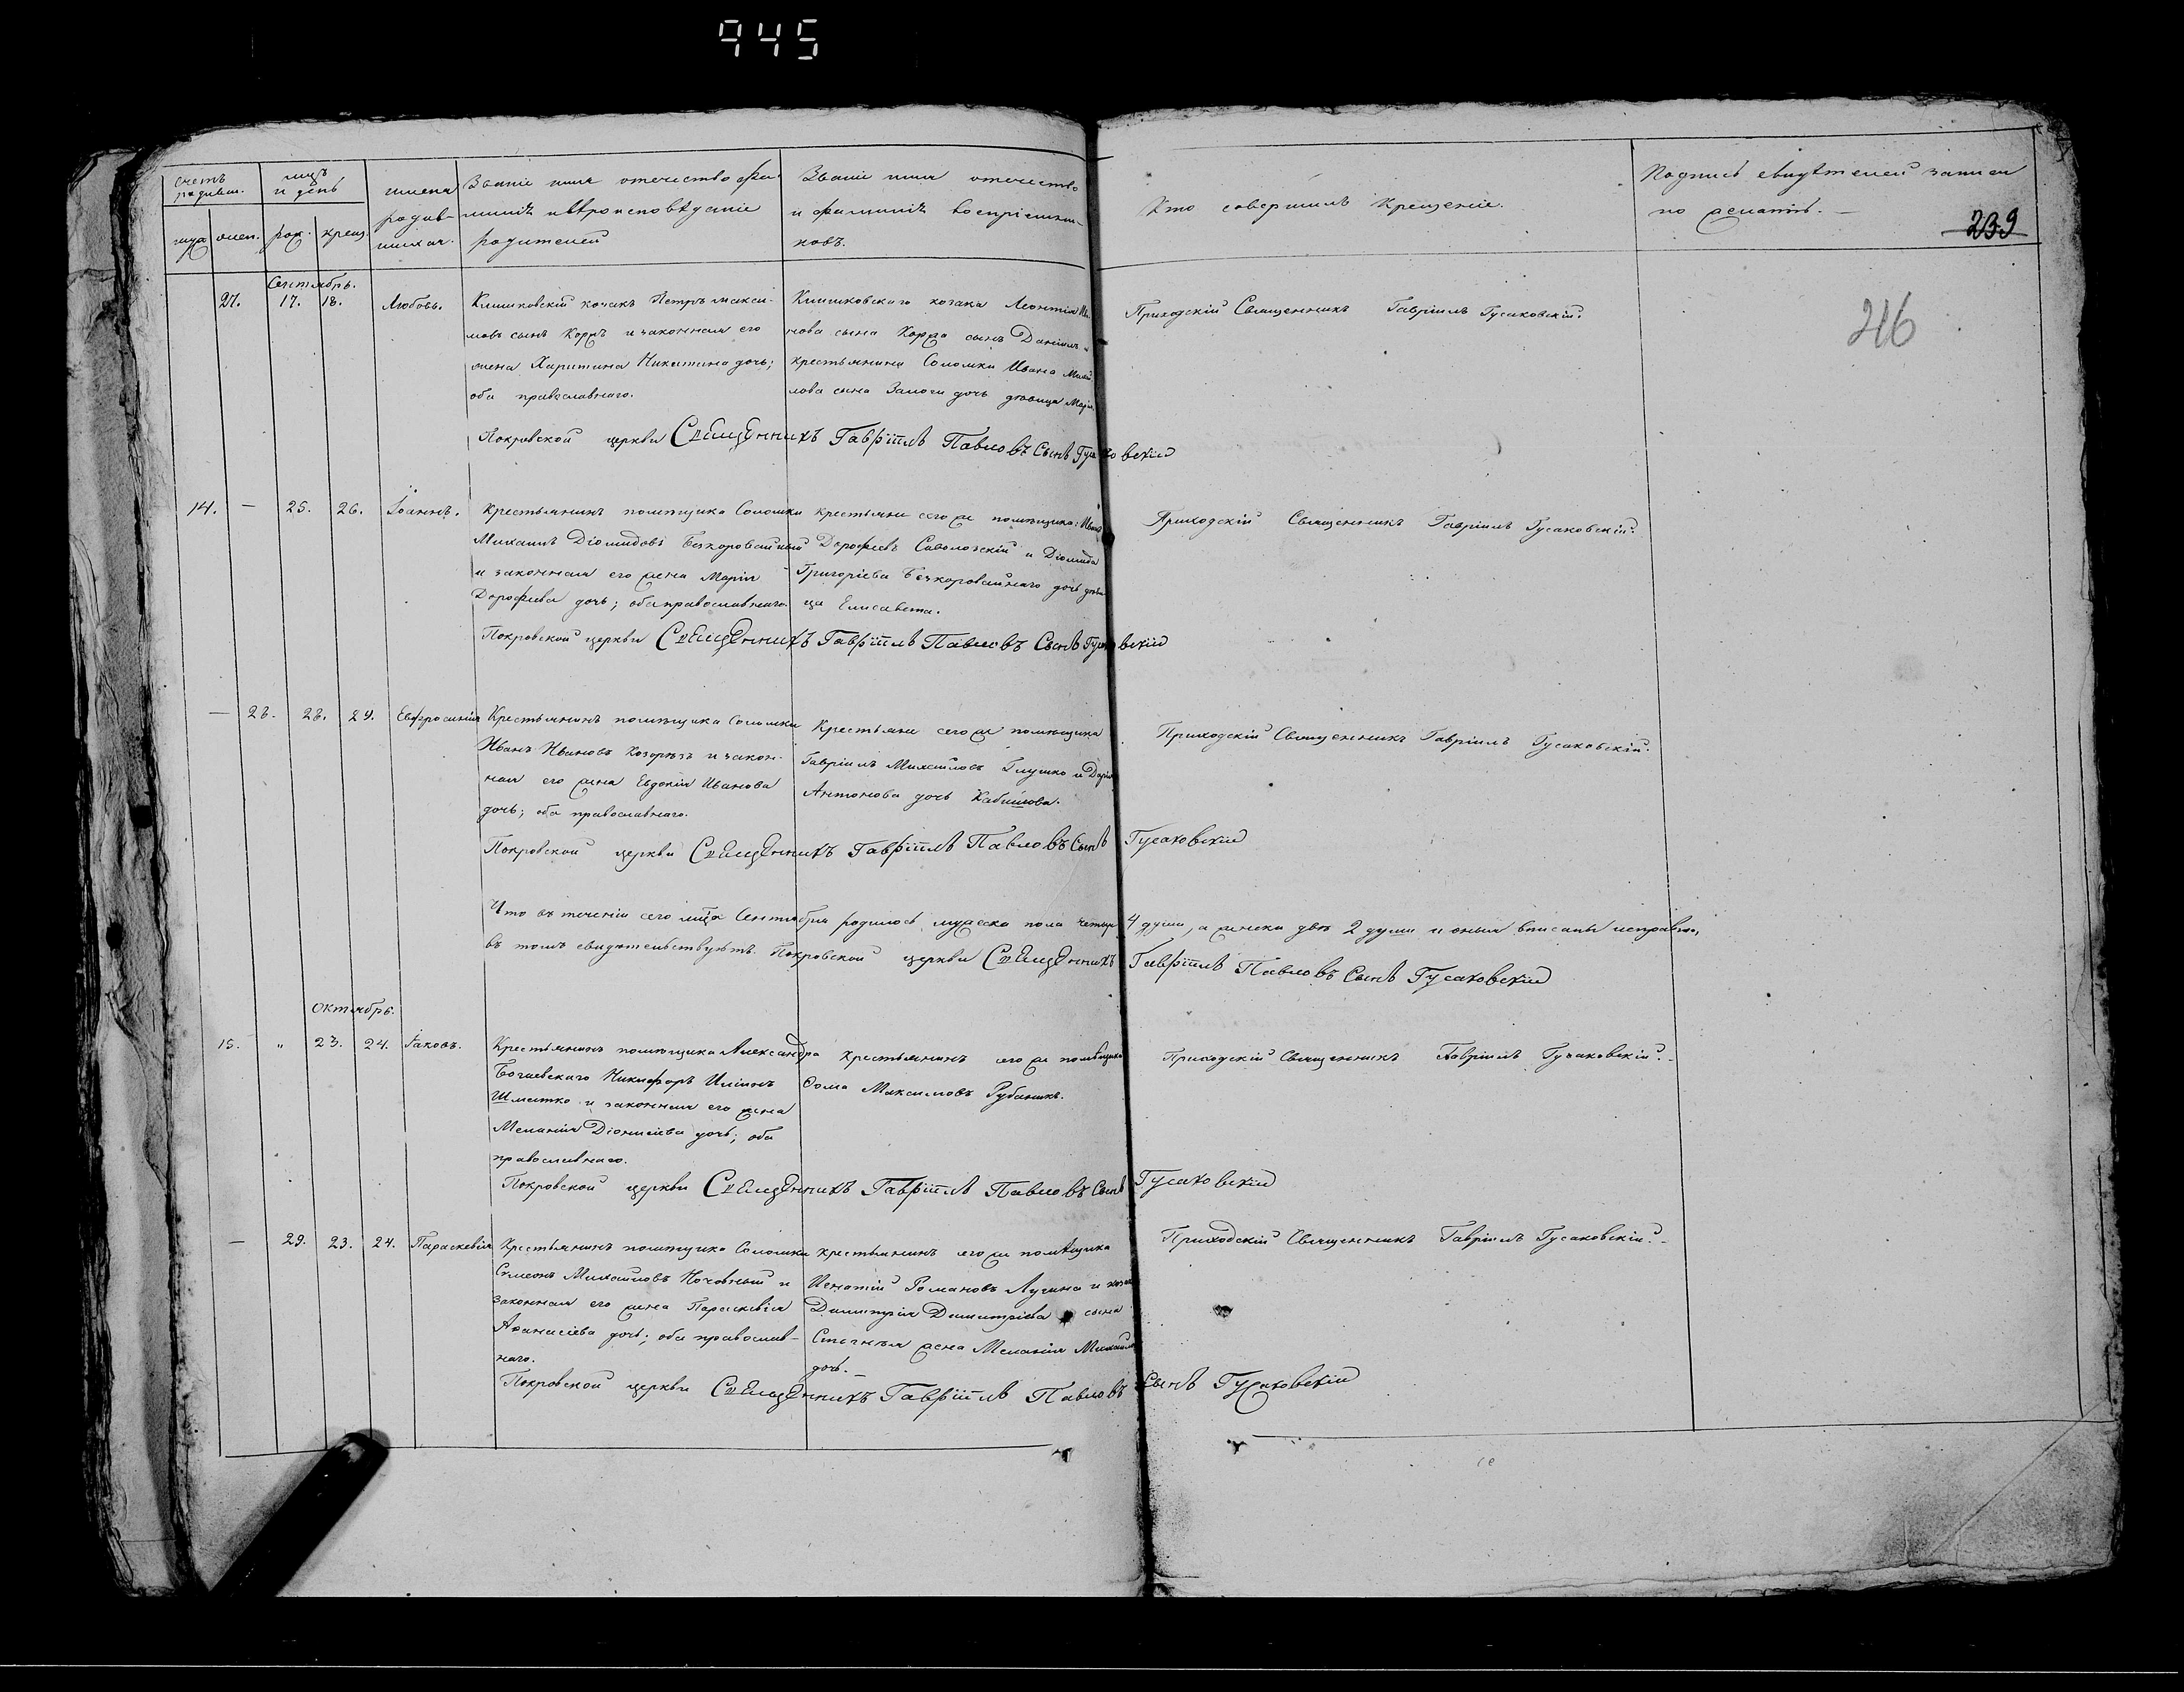 945
239
246
Счетъ родивш. мцъ и день имена родившихся. Званіе имя отечество фамилія и вѣроисповѣданіе родителей Званіе имя отечество и фамилія воспріемниковъ. Кто совершилъ Крещеніе. Подпись свидѣтелей записи по желанію.
муж. жен. рож. крещ.
Сентябрь.
27. 17. 18. Любовь.
Климковскій козакъ Петръ Макси-
мовъ сынъ Коржъ и законная его
жена Харитина Никитина дочь;
оба православнаго.
Климковскаго козака Леонтія
нова сына Коржа сынъ Даніилъ и
крестьянина Соломки Ивана
лова сына Залоги дочь дѣвица Марія
Приходскій Священникъ Гавріилъ Гусаковскій.
Покровской церкви Священникъ Гавріилъ Павловъ Сынъ Гусаковскій
14. — 25. 26. Іоаннъ.
Крестьянинъ помѣщика Соломки
Михаилъ Діомидовъ Безкоровайный
и законная его жена Марія
Дорофеева дочь; оба православнаго.
крестьяне сего же помѣщика: Иванъ
Дорофеевъ Саволожскій и Діомида
Григоріева Безкоровайнаго дочь дѣви-
ца Елисавета.
Приходскій Священникъ Гавріилъ Гусаковскій.
Покровской церкви Священникъ Гавріилъ Павловъ Сынъ Гусаковскій
— 28. 28. 29. Евфросинія
Крестьянинъ помѣщика Соломки
Иванъ Ивановъ Козорѣзъ и закон-
ная его жена Евдокія Иванова
дочь; оба православнаго.
Крестьяне сего же помѣщика
Гавріилъ Михайловъ Глушко и Дарія
Антонова дочь Кабишова.
Приходскій Священникъ Гавріилъ Гусаковскій.
Покровской церкви Священникъ Гавріилъ Павловъ Сынъ Гусаковскій
Что въ теченіи сего мца Сентября родилось мужеска пола четыре 4 души, а женска двѣ 2 души и оныя вписаны исправно,
въ томъ свидѣтельствуетъ. Покровской церкви Священникъ Гавріилъ Павловъ Сынъ Гусаковскій
Октябрь.
15. " 23. 24. Іаковъ.
Крестьянинъ помѣщика Александра
Богаевскаго Никифоръ Иліинъ
Шматко и законная его жена
Меланія Діонисіева дочь; оба
православнаго.
крестьянинъ сего же помѣщика
Ѳома Максимовъ Рубаникъ.
Приходскій Священникъ Гавріилъ Гусаковскій.
Покровской церкви Священникъ Гавріилъ Павловъ Сынъ Гусаковскій
— 29. 23. 24. Параскевія
Крестьянинъ помѣщика Соломки
Симеонъ Михайловъ Ночовный и
законная его жена Параскевія
Аѳанасіева дочь; оба православ-
наго.
крестьянинъ сего же помѣщика
Игнатій Романовъ Лучина и
Димитрія Димитріева сына
жена Меланія Михайлова
дочь.
Приходскій Священникъ Гавріилъ Гусаковскій.
Покровской церкви Священникъ Гавріилъ Павловъ Сынъ Гусаковскій